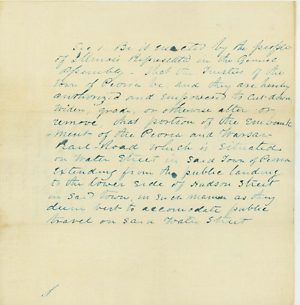 Sec 1 Be it enacted by the people
of Illinois Represented in the General
Assembly. That the Trustees of the
town of Peoria be and they are hereby
authorized and empowered to cut down
widen, grade, or otherwise alter or
remove that portion of the Embank
ment of the Peoria and Warsaw
Rail-Road which is situated
on Water Street in said Town of Peoria
Extending from the public landing
to the lower side of Hudson Street
in said town, in such manner as they
deem best to accomodate public
travel on said Water Street